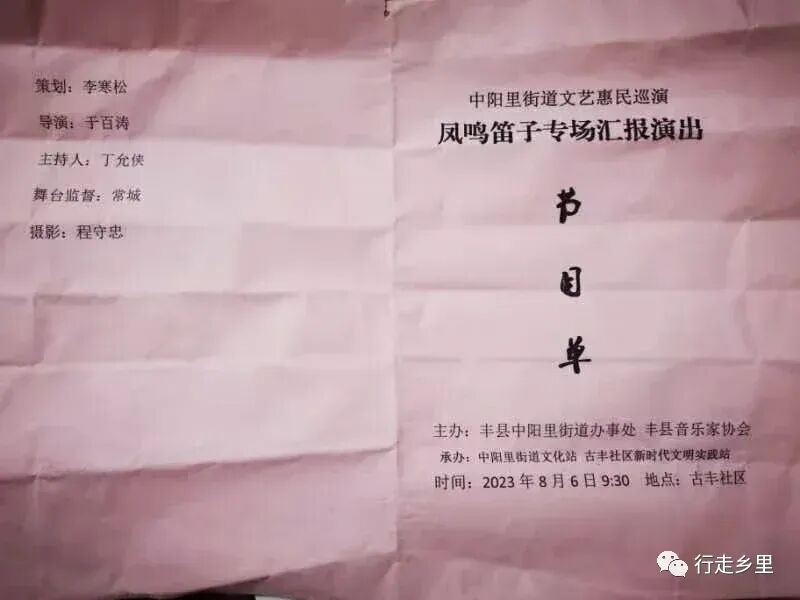 策划：李寒松
导演：于百涛
主持人：丁允侠
舞台监督：常城
摄影：程守忠
中阳里街道文艺惠民巡演
凤鸣笛子专场汇报演出
节
目
单
主办：丰县中阳里街道办事处 丰县音乐家协会
承办：中阳里街道文化站 古丰社区新时代文明实践站
时间：2023 年 8 月 6 日 9:30 地点：古丰社区
行走乡里